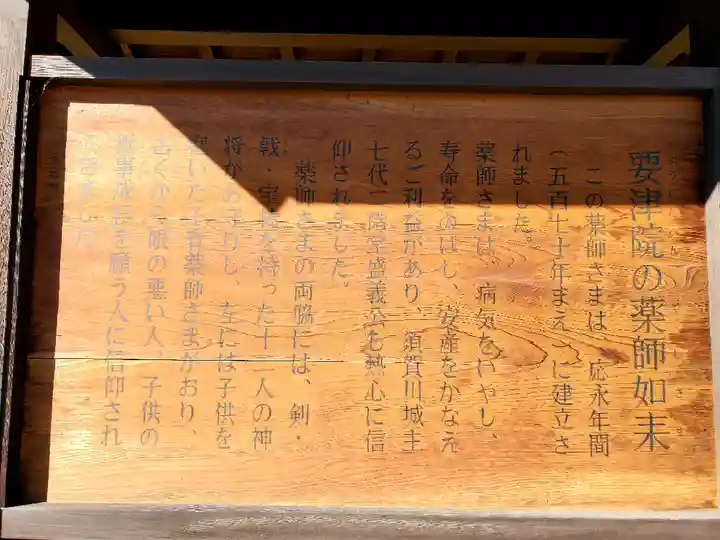 要津院の薬師如来
この薬師さまは、応永年間
(五百七十年まえ)に建立さ
れました。
薬師さまは、病気をいやし、
寿命をのばし、安産をかなえ
るご利益があり、須賀川城主
七代二階堂盛義公も熱心に信
仰されました。
薬師さまの両脇には、剣・
戟・宝棒を持った十二人の神
将がお守りし、左には子供を
抱いた子育薬師さまがおり、
古くから眼の悪い人、子供の
諸事成長を願う人に信仰され
てきました。